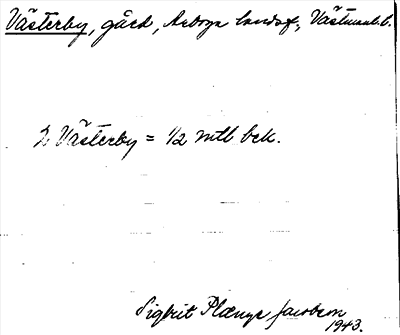 Västerby, gård, Arboga landsf., Västmanl. l.
2 Västerby = 1/2 mtl bck.
Sigbrit Plænge Jacobson
1943.